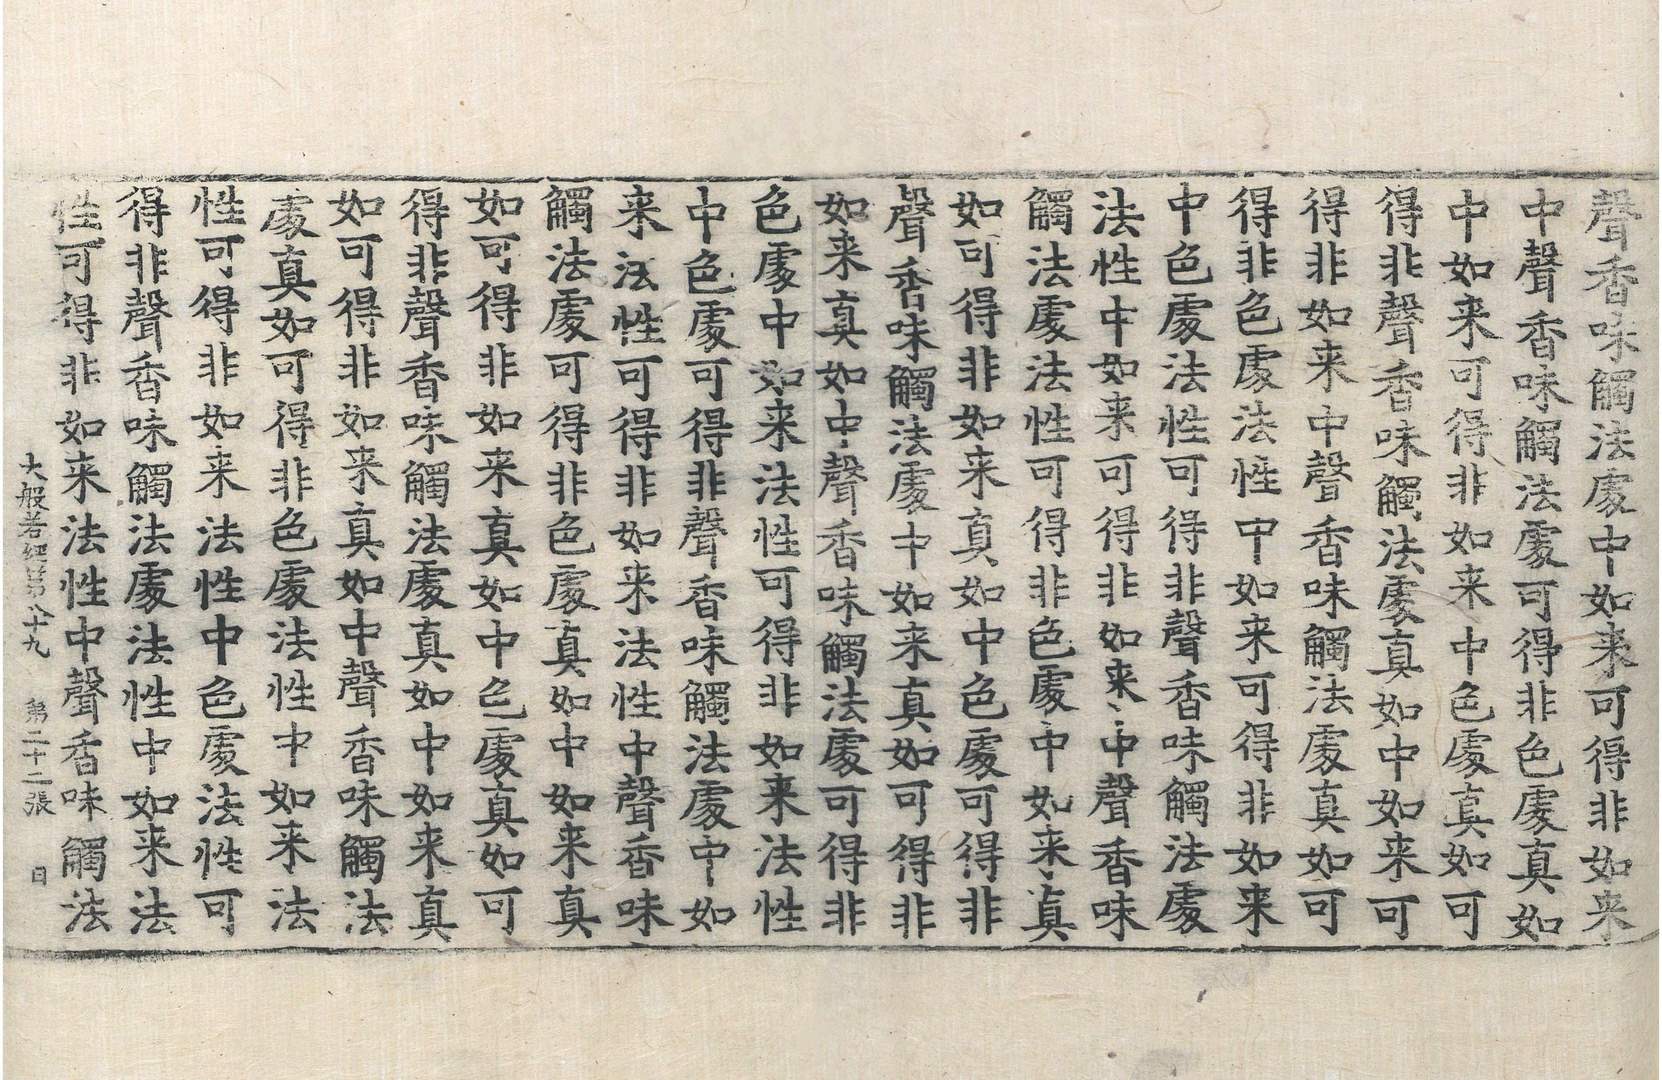 聲香味觸法處中如来可得非如来
中聲香味觸法處可得非色處真如
中如来可得非如来中色處真如可
得非聲香味觸法處真如中如来可
得非如来中聲香味觸法處真如可
得非色處法性中如来可得非如来
中色處法性可得非聲香味觸法處
法性中如来可得非如来中聲香味
觸法處法性可得非色處中如来真
如可得非如来真如中色處可得非
聲香味觸法處中如来真如可得非
如来真如中聲香味觸法處可得非
色處中如来法性可得非如来法性
中色處可得非聲香味觸法處中如
来法性可得非如来法性中聲香味
觸法處可得非色處真如中如来真
如可得非如来真如中色處真如可
得非聲香味觸法處真如中如来真
如可得非如来真如中聲香味觸法
處真如可得非色處法性中如来法
性可得非如来法性中色處法性可
得非聲香味觸法處法性中如来法
性可得非如来法性中聲香味觸法
大般若經第八十九 第二十二張 日